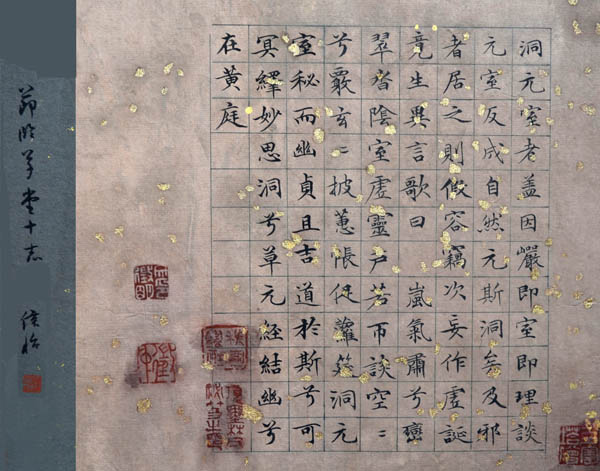 洞元室者盖因巖即室即理談
元室反成自然元斯洞矣及邪
者居之則假容竊次妄作虛誕
竟生異言歌曰 嵐氣肅兮巒
翠沓陰室虛靈戶芳帀談空〻
兮覈玄〻披蕙帳促蘿筵洞元
室秘而幽貞且吉道於斯兮可
冥繹妙思洞兮草元經結幽兮
在黄庭
節臨草堂十志